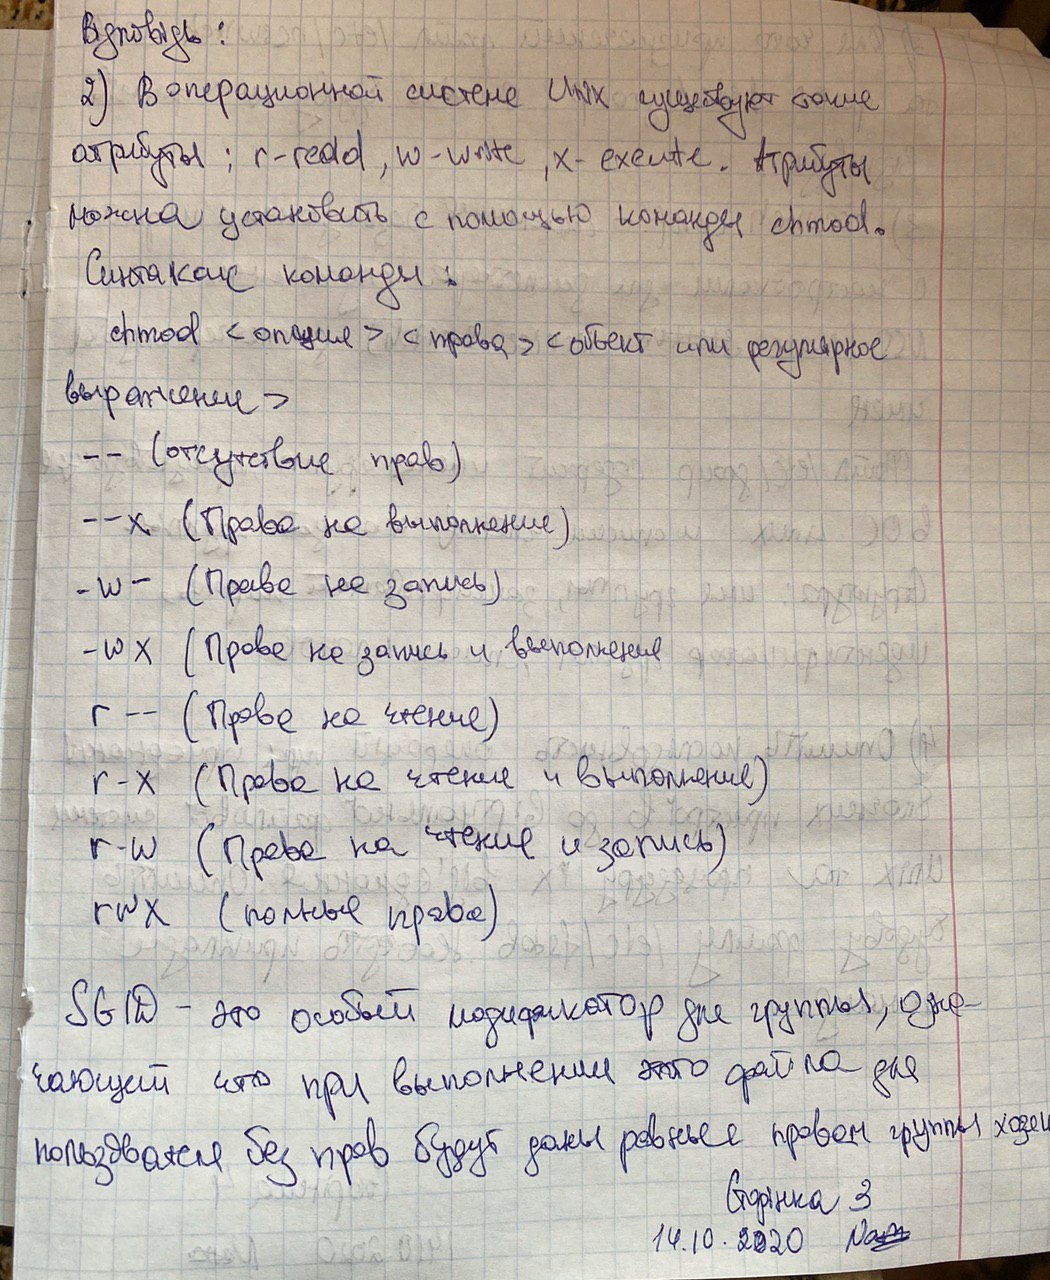 Відповідь:
2) В операционной системе Unix существуют такие
атрибуты; r-read, w-write, x-execute. Атрибуты
можна установить с помощью команды chmod.
Синтаксис команды:
chmod <опция> <права> <объект или регулярное
выражение>
-- (отсутствие прав)
--x (Права на выполнение)
-w- (Права на запись)
-wx (Права на запись и выполнения
r-- (Права на чтение)
r-x (Права на чтение и выполнение)
r-w (Права на чтение и запись)
rwx (полные права)
SGID - это особый модификатор для группы, озна-
чающий что при выполнении это файла для
пользователя без прав будут даны равные правам группы
Сторінка 3
14.10.2020